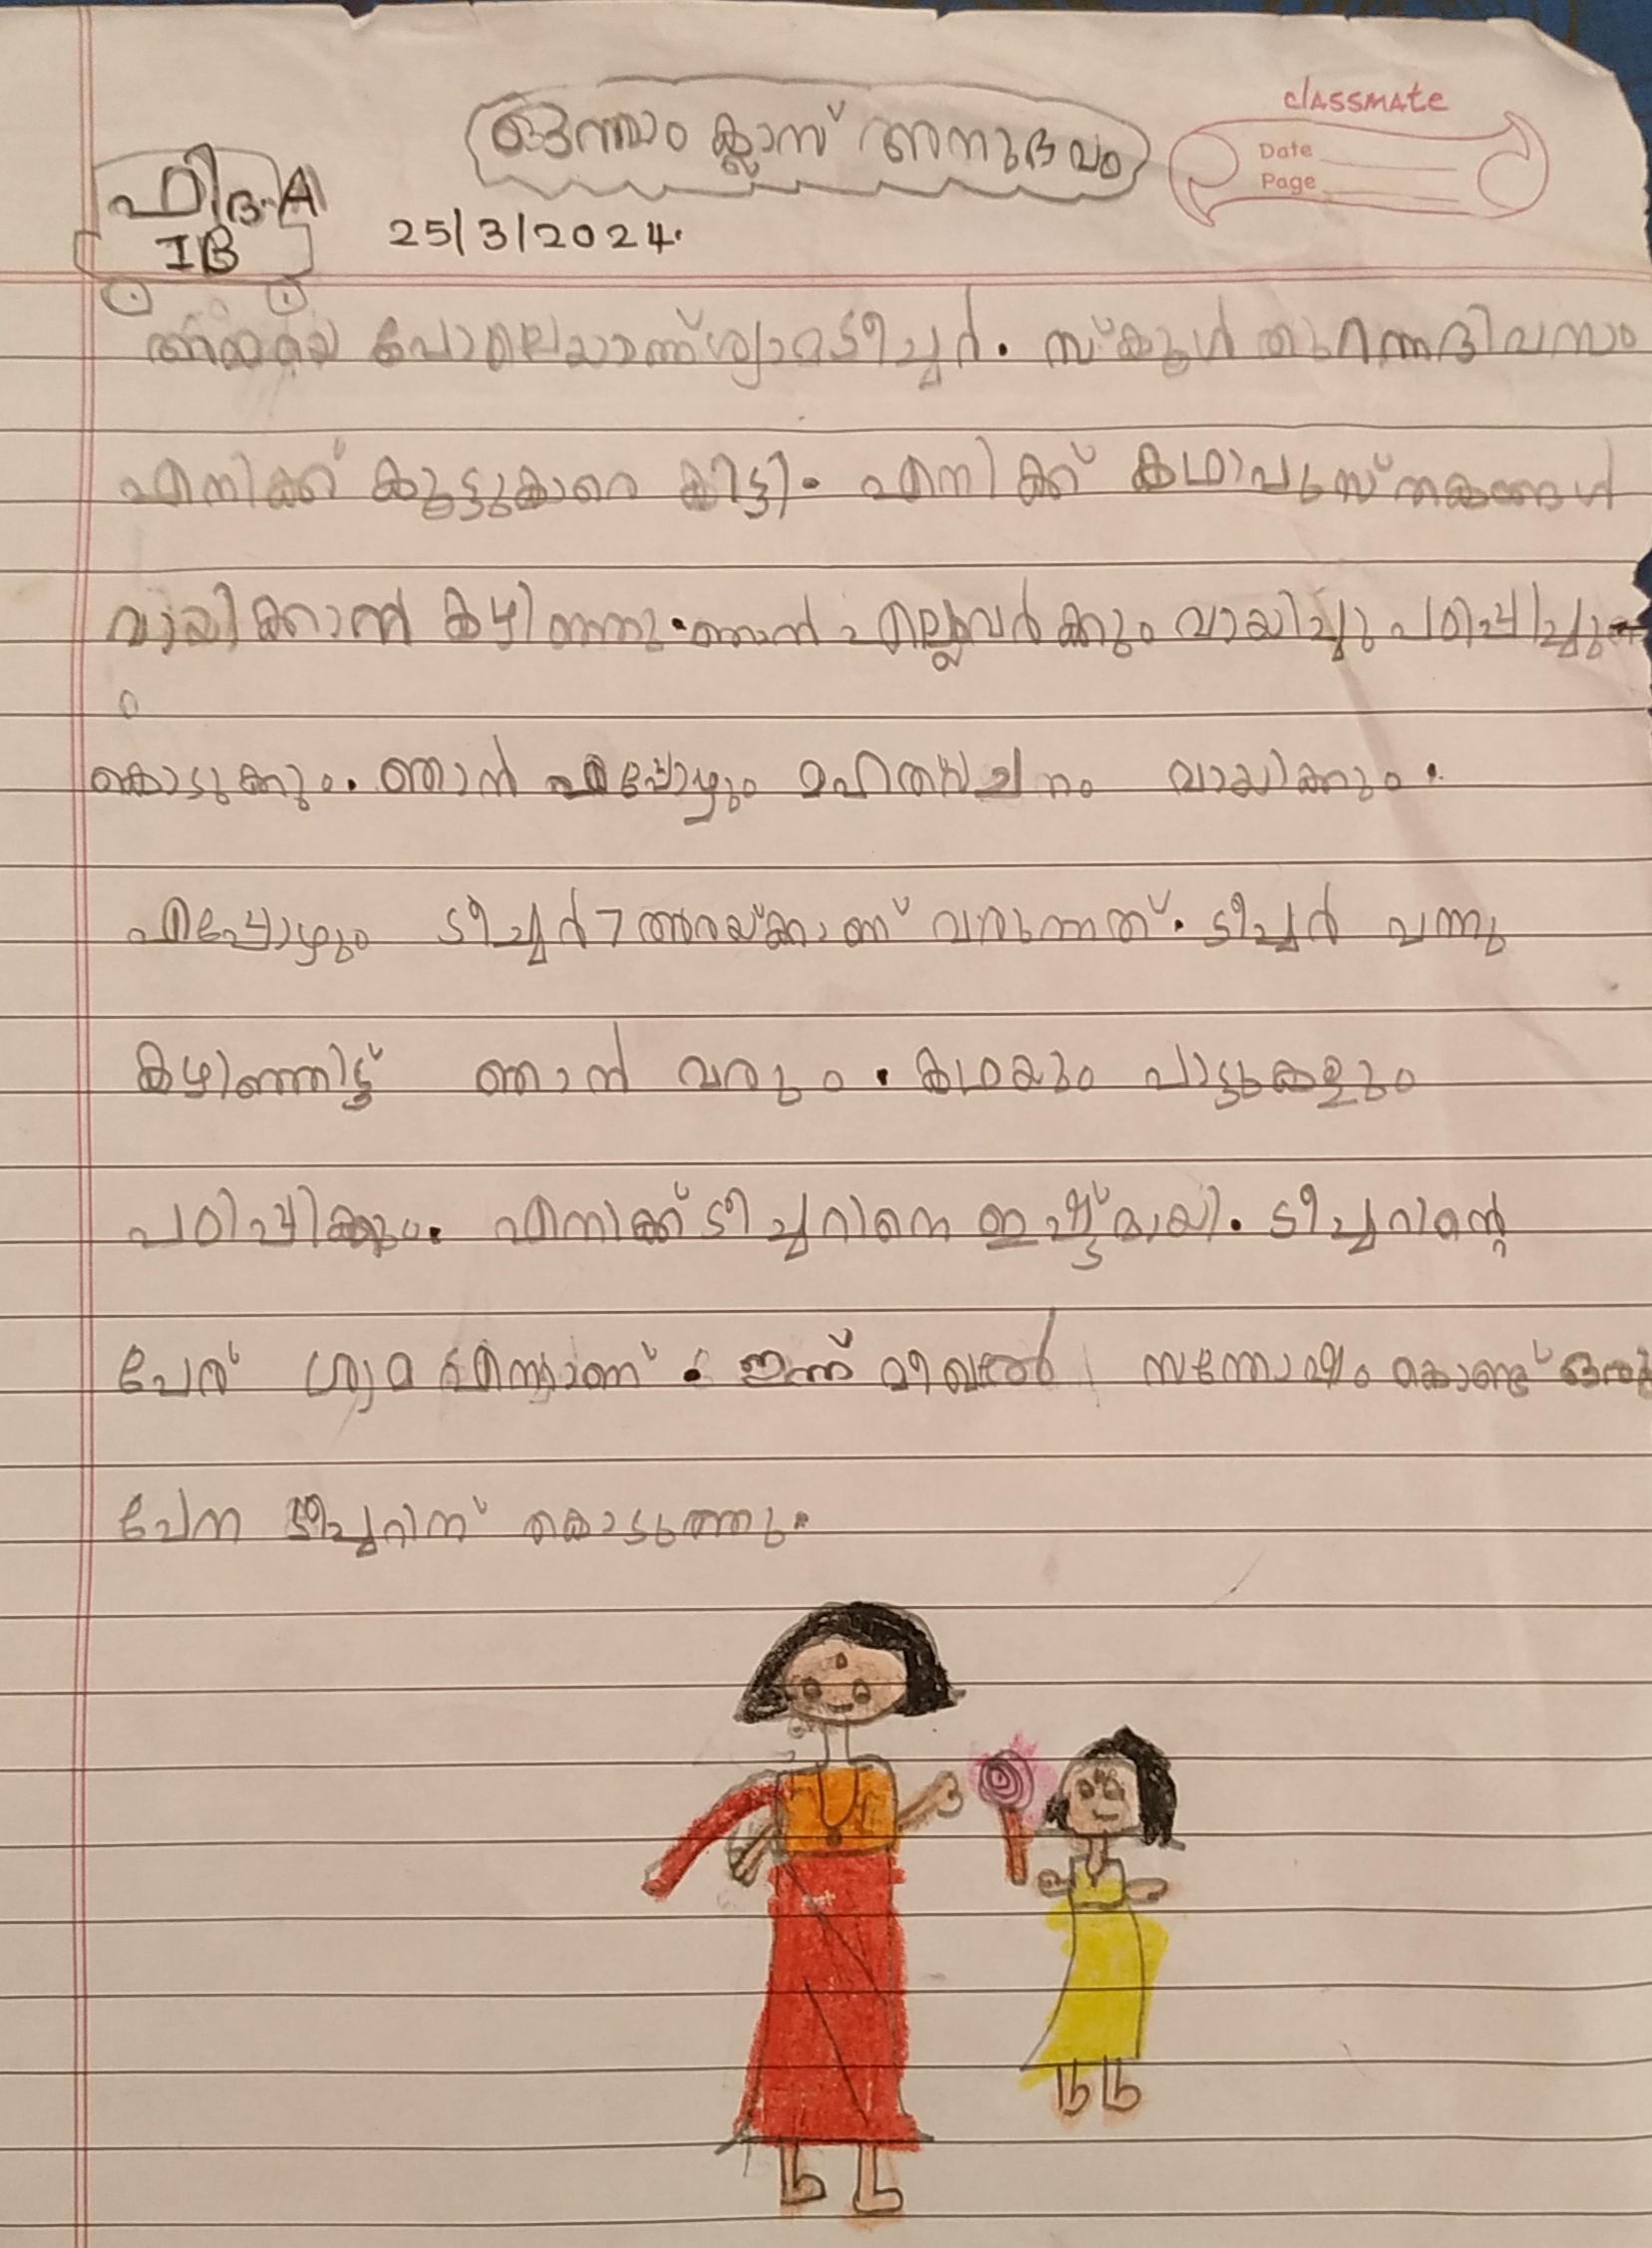 ഒന്നാം ക്ലാസ് അനുഭവം
classmate
Date
Page
ഫിദ.A
IB
25/3/2024.
അമ്മയെ പോലെയാണ് ശ്യാമടീച്ചർ. സ്കൂൾ തുറന്നദിവസം
എനിക്ക് കൂട്ടുകാരെ കിട്ടി. എനിക്ക് കഥാപുസ്തകങ്ങൾ
വായിക്കാൻ കഴിഞ്ഞു. ഞാൻ എല്ലവർക്കും വായിച്ചു പഠിപ്പിച്ചു
കൊടുക്കും. ഞാൻ എപ്പോഴും വായിക്കും.
എപ്പോഴും ടീച്ചർ 7 അരയ്ക്കാണ് വരുന്നത്. ടീച്ചർ വന്നു
കഴിഞ്ഞിട്ട് ഞാൻ വരും. കഥയും പാട്ടുകളും
പഠിപ്പിക്കും. എനിക്ക് ടീച്ചറിനെ ഇഷ്ട്മായി. ടീച്ചറിന്റെ
പേര് ശ്യാമ എന്നാണ്. ഇന്ന് മീഖൽ സന്തോഷം കൊണ്ട് ഒരു
പേന ടീച്ചറിന് കൊടുത്തു.